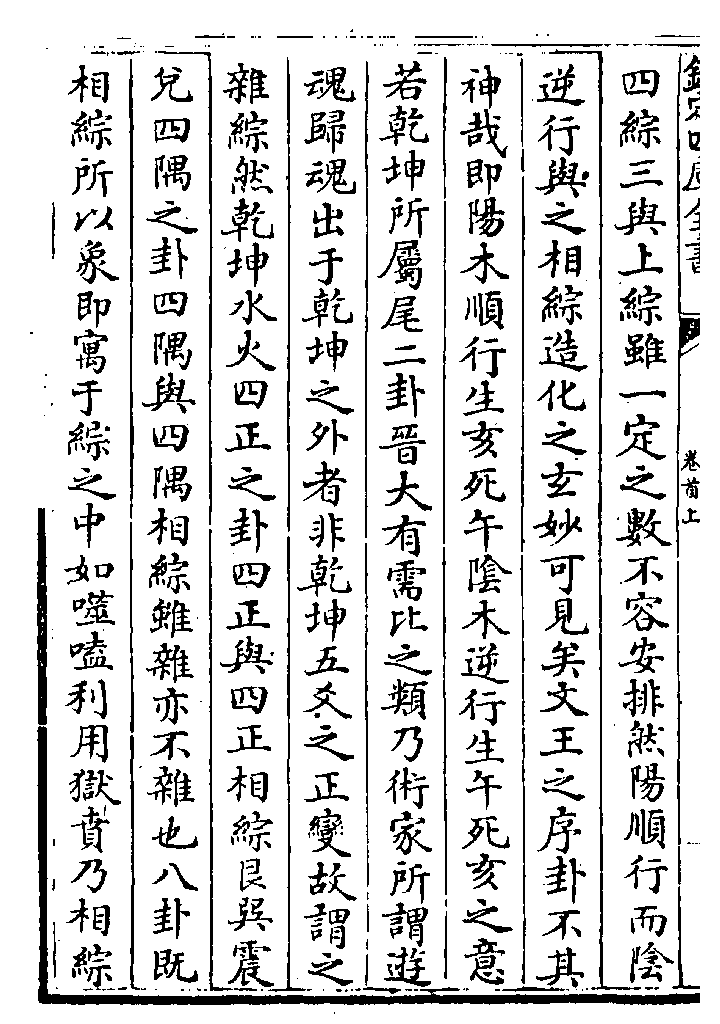 欽定四庫全書
卷首上
四綜三與上綜雖一定之數不容安排然陽順行而陰
逆行與之相綜造化之玄妙可見矣文王之序卦不其
神哉即陽木順行生亥死午陰木逆行生午死亥之意
若乾坤所屬尾二卦晉大有需比之類乃術家所謂遊
魂歸魂出于乾坤之外者非乾坤五爻之正變故謂之
雜綜然乾坤水火四正之卦四正與四正相綜艮巽震
兌四隅之卦四隅與四隅相綜雖雜亦不雜也八卦既
相綜所以象即寓于綜之中如噬嗑利用獄賁乃相綜